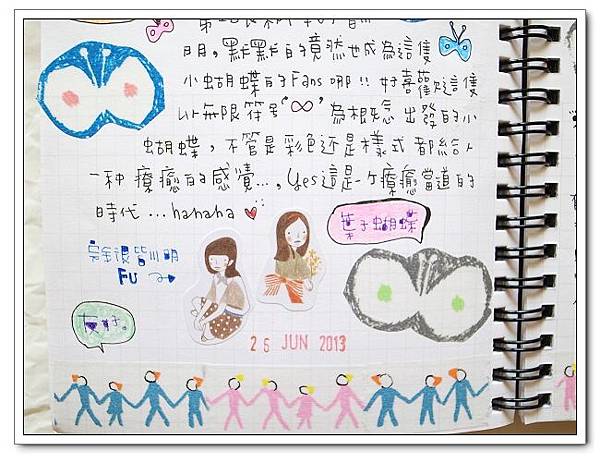 明，點點的竟然也成為這隻
小蝴蝶的Fans哪!! 好喜歡這隻
以無限符號"∞"為概念出發的小
蝴蝶，不管是彩色還是樣式都給人
一种療癒的感覺...，Yes這是一个療癒當道的
時代...hahaha
葉子蝴蝶
完全很皆川明
FU
灰好。
25 JUN 2013